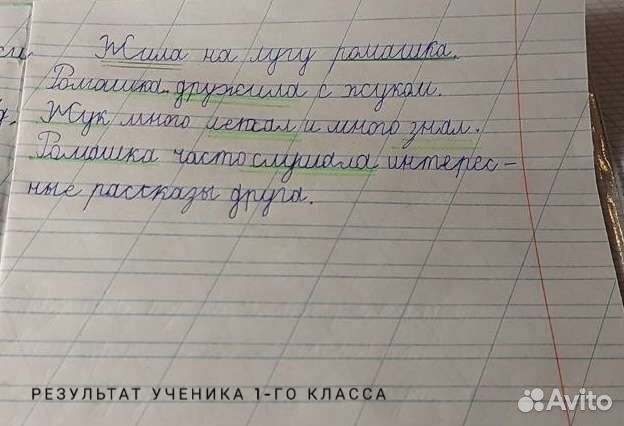 Жила на лугу ромашка.
Ромашка дружила с жуком.
Жук много летал и много знал.
Ромашка часто слушала интерес-
ные рассказы друга.
РЕЗУЛЬТАТ УЧЕНИКА 1-ГО КЛАССА
Avito